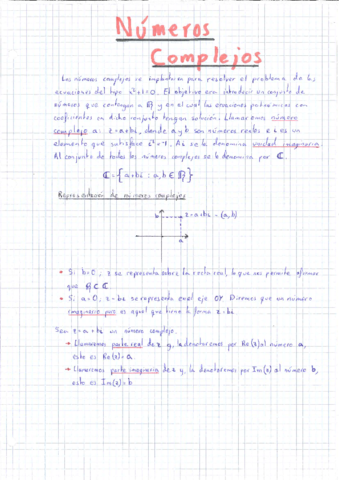 Números
Complejos
Los números complejos se introducen para resolver el problema de las
ecuaciones del tipo x²+1=0. El objetivo será introducir un conjunto de
números que contengan a ℝ y en el cual las ecuaciones polinómicas con
coeficientes en dicho conjunto tengan solución. Llamaremos número
complejo a: z=a+bi, donde a y b son números reales e i es un
elemento que satisface i²=-1. A i se le denomina unidad imaginaria.
Al conjunto de todos los números complejos se le denomina por ℂ.
ℂ={a+bi : a,b ∈ ℝ}
Representación de números complejos
b
z=a+bi ~ (a,b)
a
• Si b=0, z se representa sobre la recta real, lo que nos permite afirmar
que ℝ⊂ℂ
• Si a=0, z=bi se representa en el eje OY. Diremos que un número
imaginario puro es aquel que tiene la forma z=bi
Sea z=a+bi un número complejo.
• Llamaremos parte real de z y, la denotaremos por Re(z) al número a,
esto es Re(z)=a
• Llamaremos parte imaginaria de z y, la denotaremos por Im(z) al número b,
esto es Im(z)=b